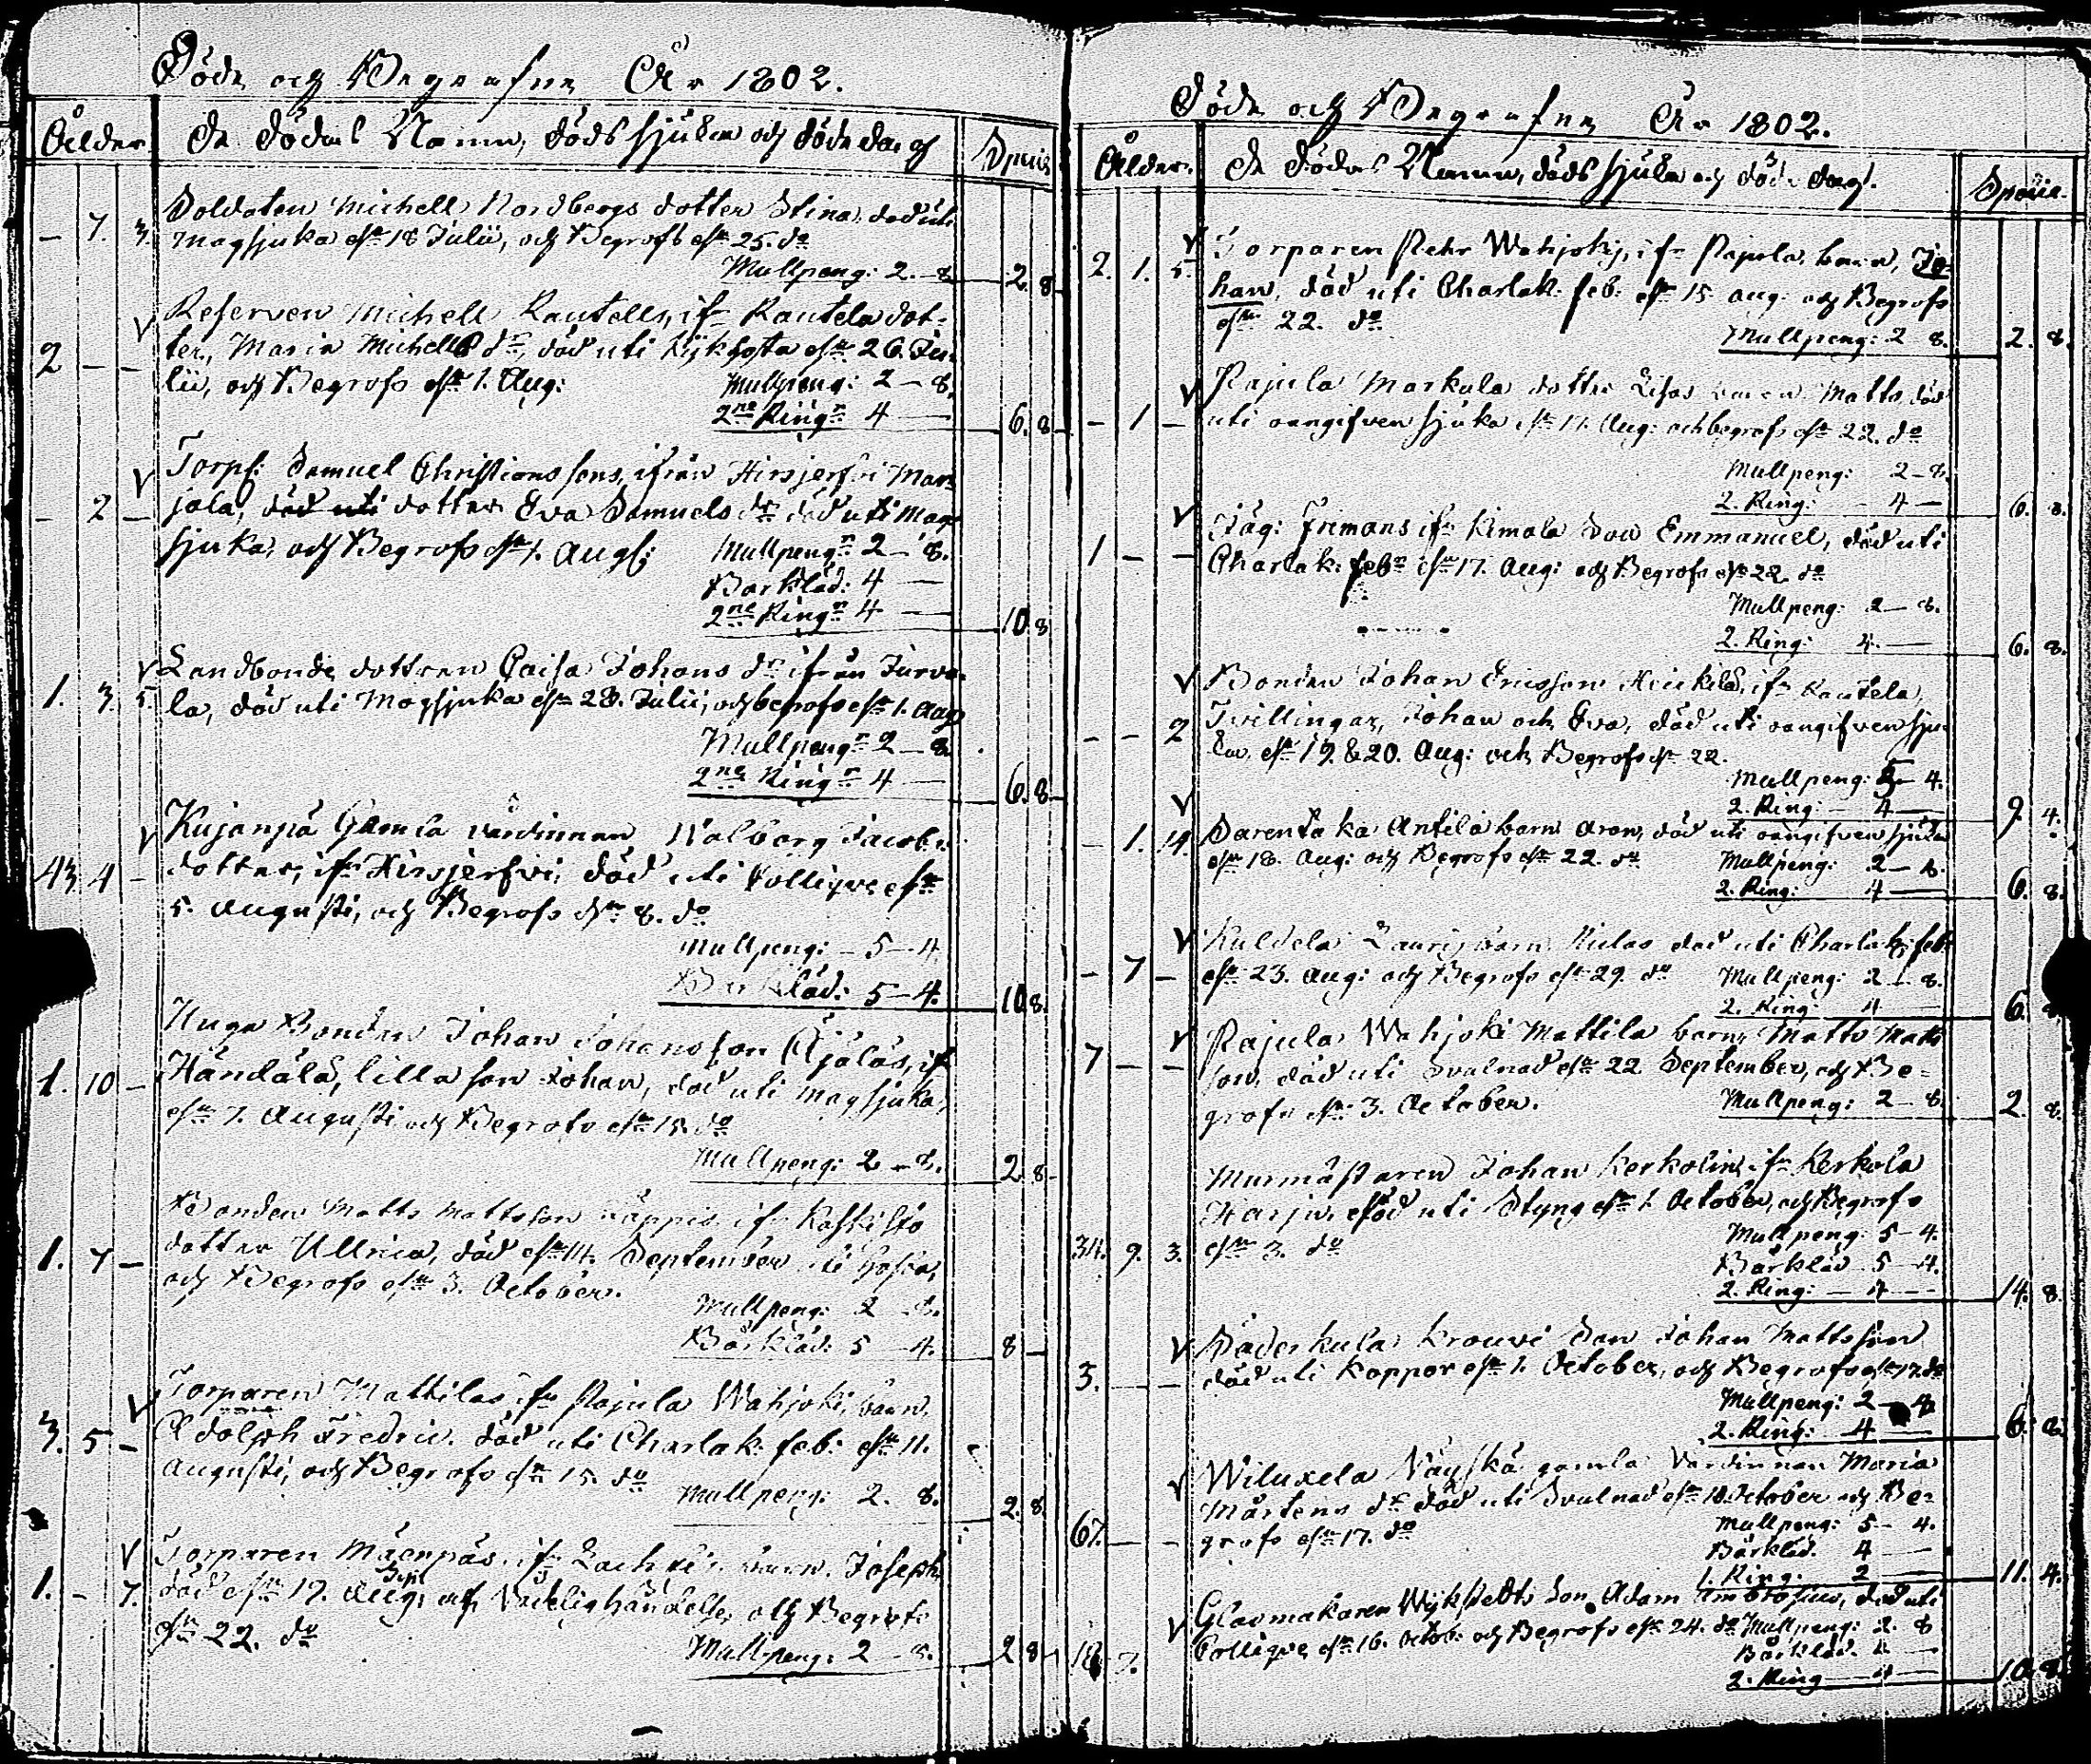 Döde och Begrafne År 1802.
Ålder De Dödas Namn, döds sjukdm och döde dag Specie
— 7. 3. Soldaten Michell Nordbergs dotter Stina, död uti
magsjuka d. 18 Julii, och Begrofs d. 25. do
Mullpeng: 2. — 8. 2. 8
Reserven Michell Rautells, ifr Rautela dot-
2 — — ter, Maria Michells dr, död uti Kikhosta d. 26. Ju-
lii, och Begrofs d. 1. Aug:
Mullpeng: 2 — 8.
2ne Ringn 4 — 6. 8
Torp: Samuel Christianssons, ifrån Hirsjerfvi Mar-
— 2 — jola, död uti dotter Eva Samuels dr död uti Mag-
sjuka, och Begrofs d. 1. Aug: Mullpengn 2 — 8.
Barkläd: 4 —
2ne Ringn 4 — 10. 8
Landbonde dottren Caisa Johans dr ifrån Turva-
1. 3. 5. la, död uti Magsjuka d. 28. Julii, och begrofs d. 1. Aug
Mullpengn 2 — 8.
2ne Ringn 4 — 6. 8
Kujanpä Gamla värdinnan Walborg Jacobs
43 4 — dotter, ifr Hirsjerfvi, död uti Collique d.
5. Augusti, och Begrofs d. 8. do
Mullpeng: — 5 — 4.
Barkläd: 5 — 4. 10. 8.
Unga Bonden Johan Johansson Äjäläs, ifr
1. 10 — Händälä, lilla son Johan, död uti magsjuka,
d. 7. Augusti och Begrofs d. 15. do
Mullpeng: 2 — 8. 2. 8
Bonden Matts Mattsson ifr Koskisto
1. 7 — dotter Ullrica, död d. 14. September uti hosta,
och Begrofs d. 3. October.
Mullpeng: 2 — 8.
Bårkläd: 5 — 4. 8 —
Torparen Mattilas ifr Pajula Wahjoki, barn,
3. 5 — Adolph Fredric. död uti Charlak: feb: d. 11.
Augusti, och Begrofs d. 15. do
Mullpeng: 2. 8. 2. 8
Torparen Mäenpäs, ifr barn. Joseph
1. — 7. död d. 19. Aug: af Vådelig händelse, och Begrofs
d. 22. do
Mullpeng: 2 — 8. 2 8
Döde och Begrafne År 1802.
Ålder. De Dödas Namn, döds sjukd. och döde dag. Specie.
2. 1. 5 Torparen Pehr Wahjoki, ifr Pajula, barn, Jo-
han, död uti Charlak: feb: d. 15. aug: och Begrofs
d. 22. do
Mullpeng: 2 8. 2. 8.
Pajula Markula dotter Lisas barn Matts, död
— 1 — uti oangifven sjuka d. 17. Aug: och begrofs d. 22. do
Mullpeng: 2 — 8.
2. Ring: — 4 — 6. 8.
Jäg: Frimans ifr Kimola Son Emmanuel, död uti
1 — — Charlak: febr d. 17. Aug: och Begrofs d. 22. do
Mullpeng: 2 — 8.
2. Ring: 4. — 6. 8.
Bonden Johan Ericsson Heickiläs, ifr Rautela,
— — 2 Tvillingar, Johan och Eva, död uti oangifven sju-
ka, d. 19. & 20. Aug: och Begrofs d. 22.
Mullpeng: 5 — 4.
2. Ring: 4 — 9. 4.
— 1. 14. Sarentaka Antila barn Aron, död uti oangifven sjuka
d. 18. Aug: och Begrofs d. 22. do Mullpeng: 2 — 8.
2. Ring: 4 — 6. 8.
Kuldela Lauris barn Niclas död uti Charlak: feb:
— 7 — d. 23. Aug: och Begrofs d. 29. do Mullpeng: 2 — 8.
2. Ring: 4 — 6. 8
Pajula Wahjoki Mattila barn, Matts Matts
7 — — son, död uti Svulnad d. 22 September, och Be-
grofs d. 3. October. Mullpeng: 2 — 8. 2 8.
Murmästaren Johan Kerkolin, ifr Kerkola
Harju, död uti Styng d. 1. October, och Begrofs
34. 9. 3. d. 3. do Mullpeng: 5 — 4.
Bårkläd 5 — 4.
2. Ring: — 4 — 14. 8.
Söderkula Krouvi Son Johan Mattsson
3. — — död uti Koppor d. 1. October, och Begrofs d. 17. do
Mullpeng: 2 — 8
2. Ring: 4 — 6. 8.
Wiluxela Näyskä gamla Värdinnan Maria
67. — — Mårtens dr död uti Svulnad d. 10. October och Be-
grofs d. 17. do Mullpeng: 5 — 4.
Bårkläd. 4 —
1. Ring: 2 — 11. 4.
Glasmakaren Wykstedts Son Adam Ambrosius, död uti
18 7. Collique d. 16. Octob: och Begrofs d. 24. do Mullpeng: 2. 8
Bårkläd. 4 —
2. Ring — 4 — 10. 8.